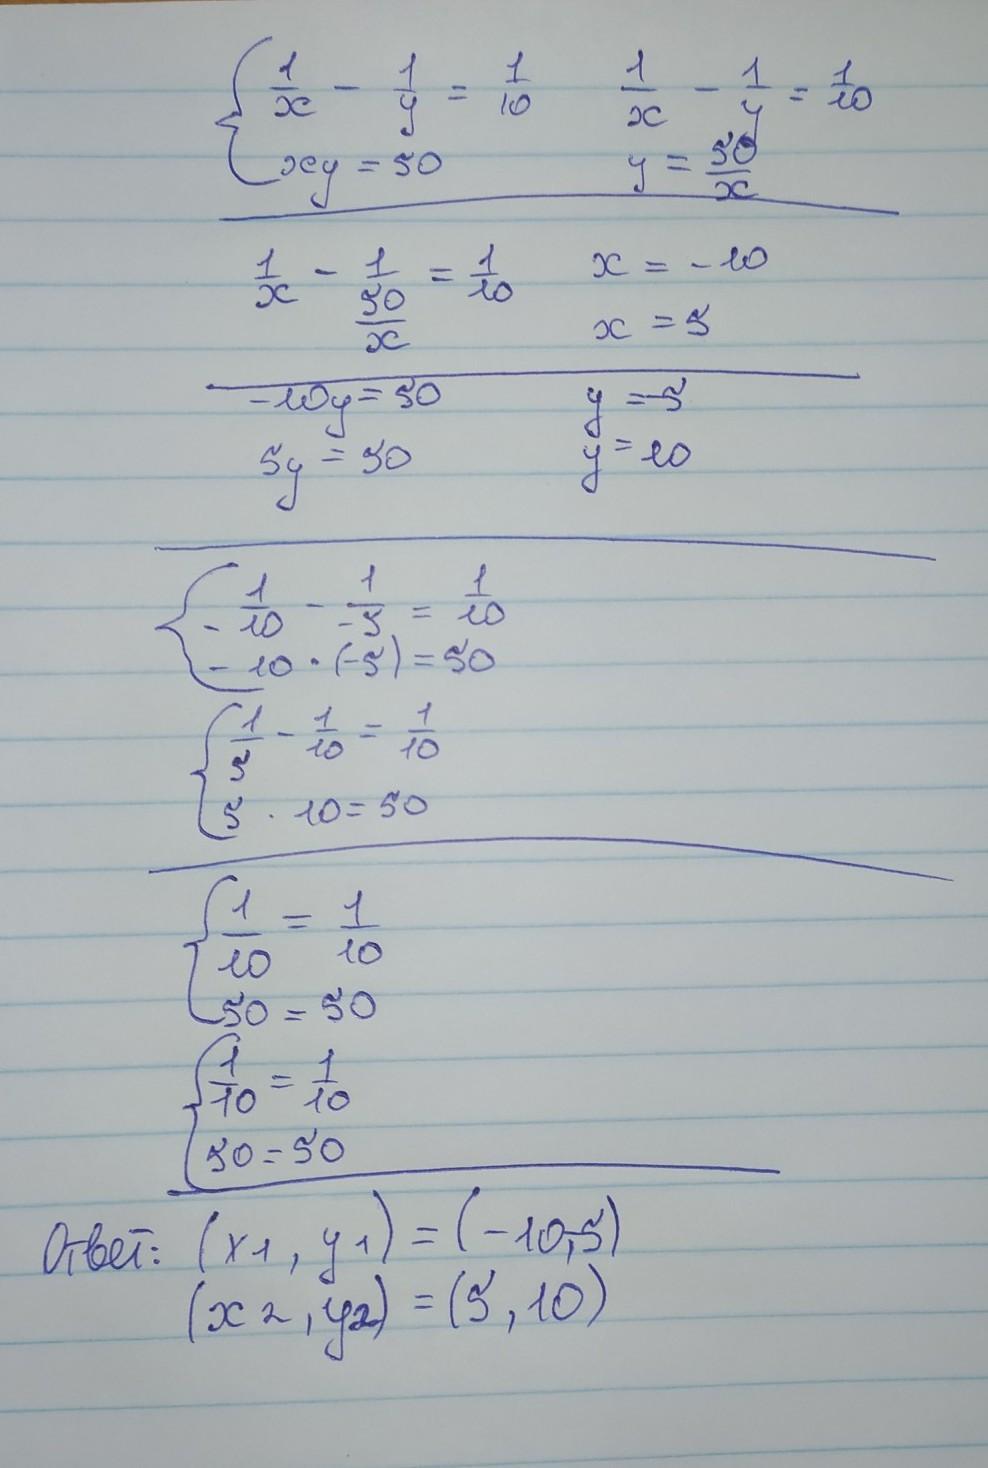 { 1/x - 1/y = 1/10    1/x - 1/y = 1/10
xy = 50    y = 50/x
1/x - 1/(50/x) = 1/10    x = -10
x = 5
-10y = 50    y = -5
5y = 50    y = 10
{ -1/10 - 1/-5 = 1/10
-10 · (-5) = 50
{ 1/5 - 1/10 = 1/10
5 · 10 = 50
{ 1/10 = 1/10
50 = 50
{ 1/10 = 1/10
50 = 50
Ответ: (x1, y1) = (-10,-5)
(x2, y2) = (5, 10)